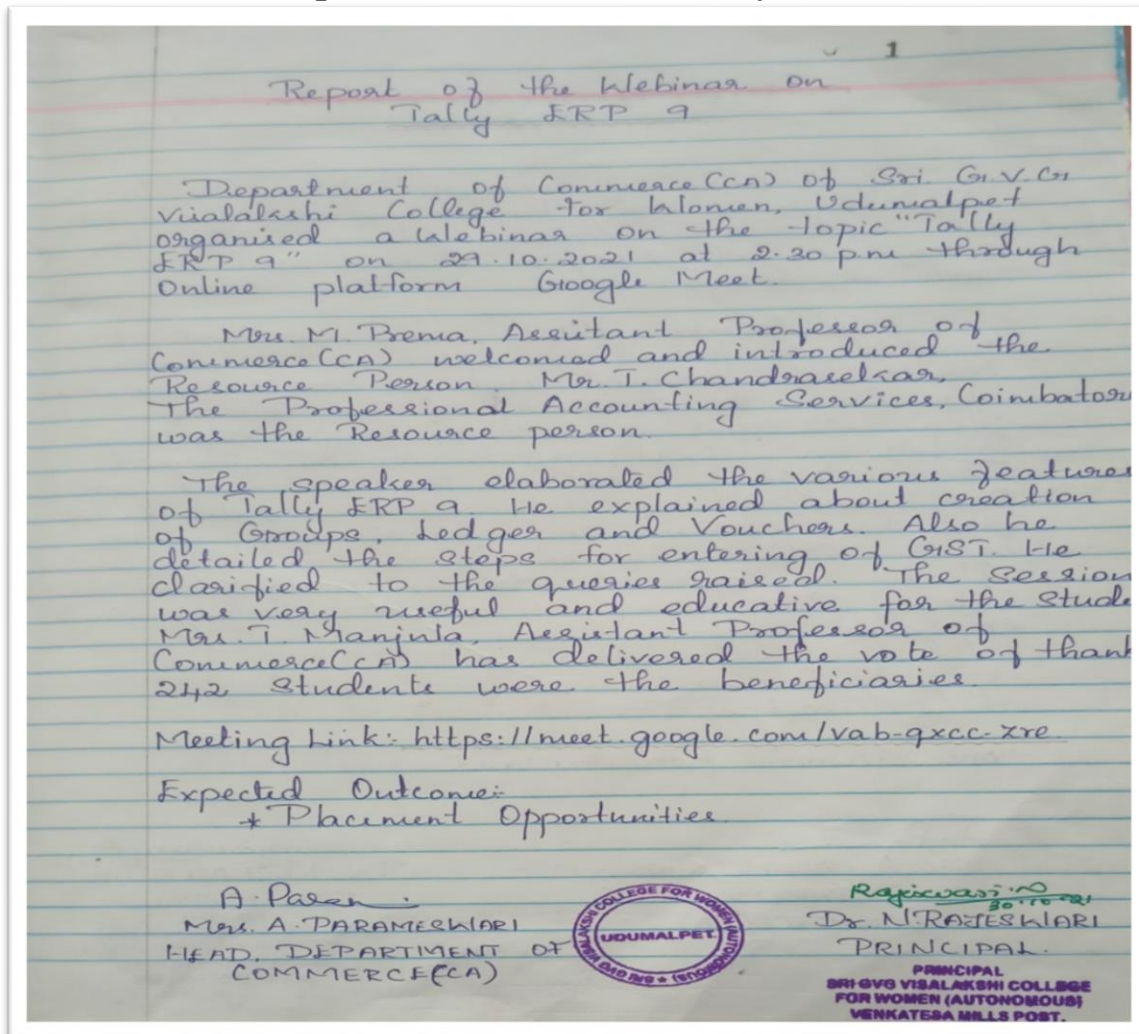 1
Report of the Webinar on
Tally ERP 9
Department of Commerce (CA) of Sri G.V.G
Visalakshi College for Women, Udumalpet
organised a Webinar on the topic "Tally
ERP 9" on 29.10.2021 at 2.30 p.m through
Online platform Google Meet.
Mrs. M. Prema, Assistant Professor of
Commerce (CA) welcomed and introduced the
Resource Person. Mr. T. Chandrasekar,
The Professional Accounting Services, Coimbator
was the Resource person.
The speaker elaborated the various features
of Tally ERP 9. He explained about creation
of Groups, Ledger and Vouchers. Also he
detailed the steps for entering of GST. He
clarified to the queries raised. The Session
was very useful and educative for the Stude
Mrs. T. Manjula, Assistant Professor of
Commerce (CA) has delivered the vote of thank
242 Students were the beneficiaries.
Meeting Link:- https://meet.google.com/vab-qxcc-zre
Expected Outcome:-
* Placement Opportunities
A. Param
Mrs. A. PARAMESWARI
HEAD, DEPARTMENT OF
COMMERCE (CA)
SRI GVG VISALAKSHI COLLEGE FOR WOMEN (AUTONOMOUS) *
UDUMALPET
Rajeswari.N
30.10.21
Dr. N. RAJESWARI
PRINCIPAL.
PRINCIPAL
SRI GVG VISALAKSHI COLLEGE
FOR WOMEN (AUTONOMOUS)
VENKATESA MILLS POST.